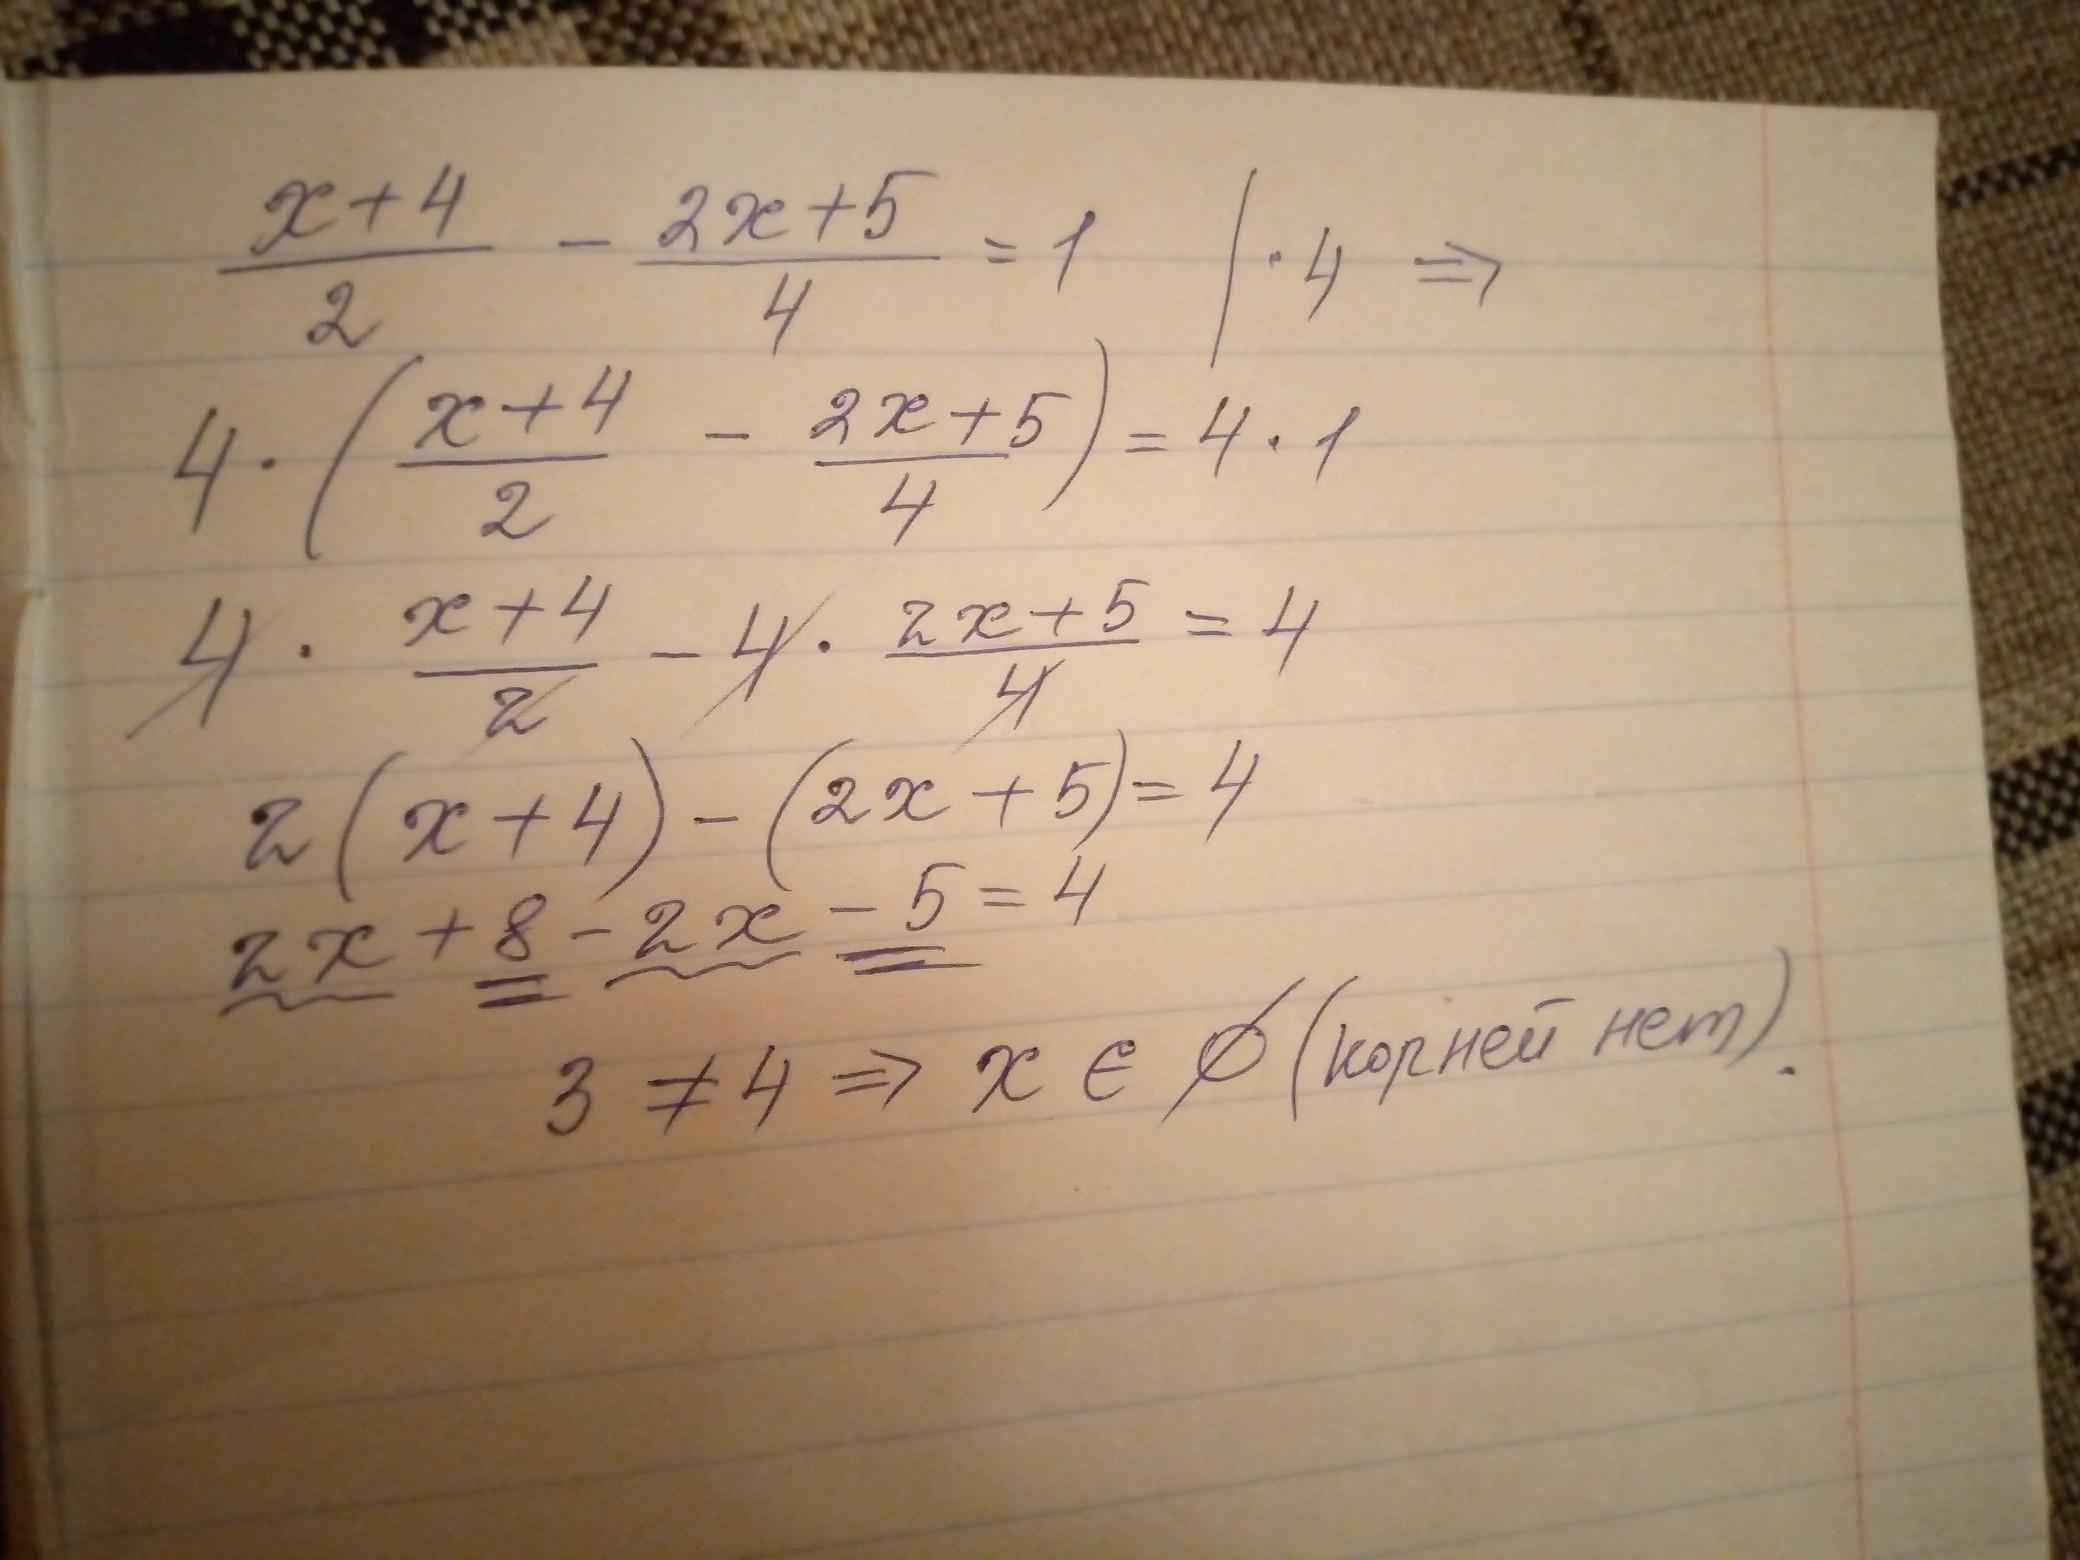 (x+4)/2 - (2x+5)/4 = 1 | · 4 ⇒
4 · ((x+4)/2 - (2x+5)/4) = 4 · 1
4 · (x+4)/2 - 4 · (2x+5)/4 = 4
2(x+4) - (2x+5) = 4
2x + 8 - 2x - 5 = 4
3 ≠ 4 ⇒ x ∈ ∅ (корней нет).